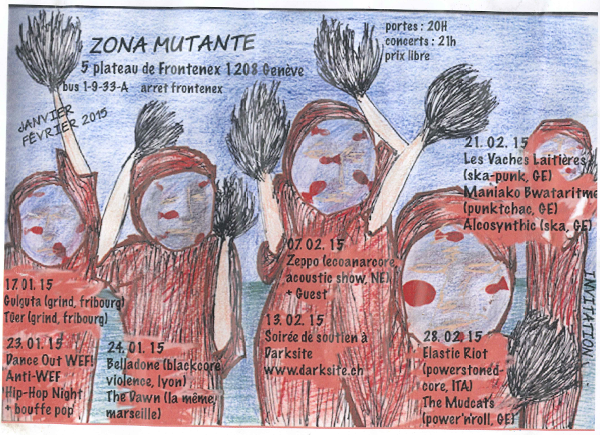 ZONA MUTANTE
5 plateau de Frontenex 1208 Genève
bus 1-9-33-A arret frontenex
portes : 20H
concerts : 21h
prix libre
JANVIER
FÉVRIER 2015
17. 01. 15
Gulguta (grind, fribourg)
Tüer (grind, fribourg)
23. 01. 15
Dance Out WEF!
Anti-WEF
Hip-Hop Night
+ bouffe pop
24. 01. 15
Belladone (blackcore
violence, lyon)
The Dawn (la même,
marseille)
07. 02. 15
Zeppo (ecoanarcore,
acoustic show, NE)
+ Guest
13. 02. 15
Soirée de soutien à
Darksite
www.darksite.ch
21. 02. 15
Les Vaches Laitières
(ska-punk, GE)
Maniako Bwataritme
(punktchac, GE)
Alcosynthic (ska, GE)
28. 02. 15
Elastic Riot
(powerstoned-
core, ITA)
The Mudcats
(power'n'roll, GE)
INVITATION